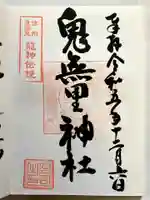 奉拝 令和五年十二月六日
鬼無里神社
龍神伝説